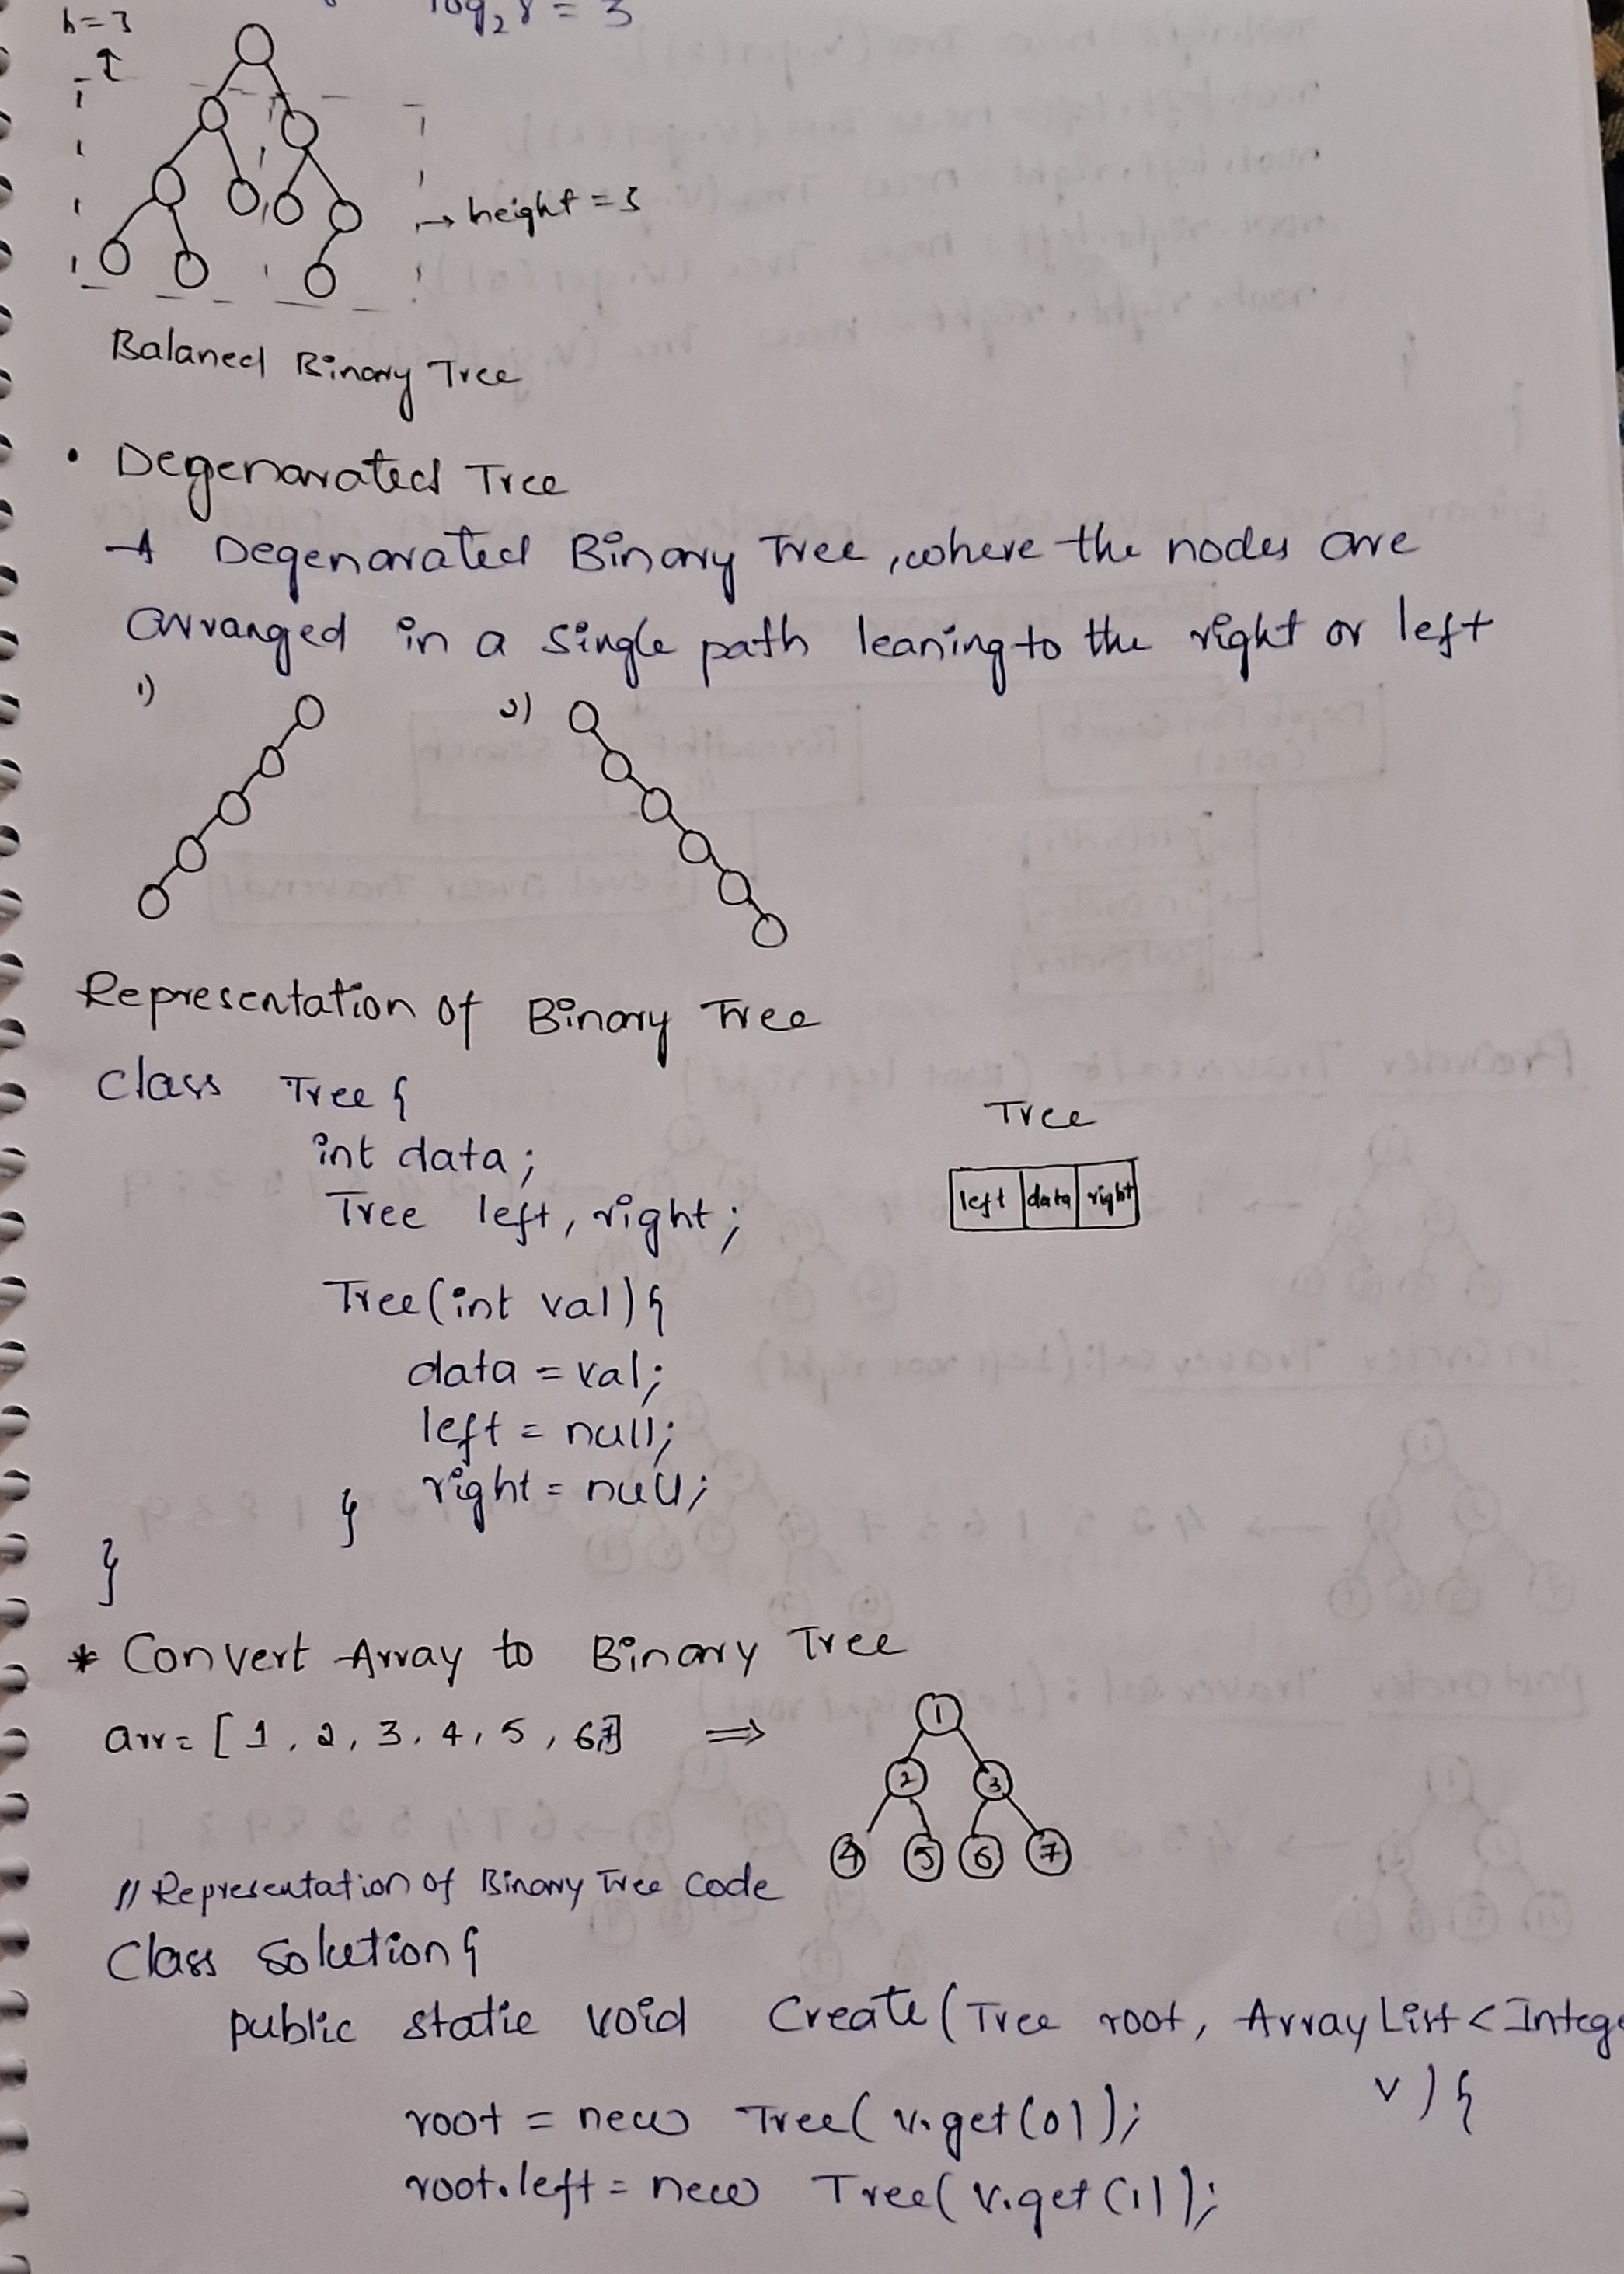 h=3
log₂8 = 3
→ height = 3
Balaned Binary Tree
• Degenarated Tree
A Degenarated Binary Tree, where the nodes are
arranged in a single path leaning to the right or left
1)
2)
Representation of Binary Tree
Class Tree {
int data;
Tree left, right;
Tree
left data right
Tree(int val){
data = val;
left = null;
right = null;
}
}
* Convert Array to Binary Tree
arr = [1, 2, 3, 4, 5, 6,7] ⇒
1
2 3
4 5 6 7
// Representation of Binary Tree Code
Class Solution{
public static void Create(Tree root, ArrayList<Intege
v){
root = new Tree(v.get(0));
root.left = new Tree(v.get(1));